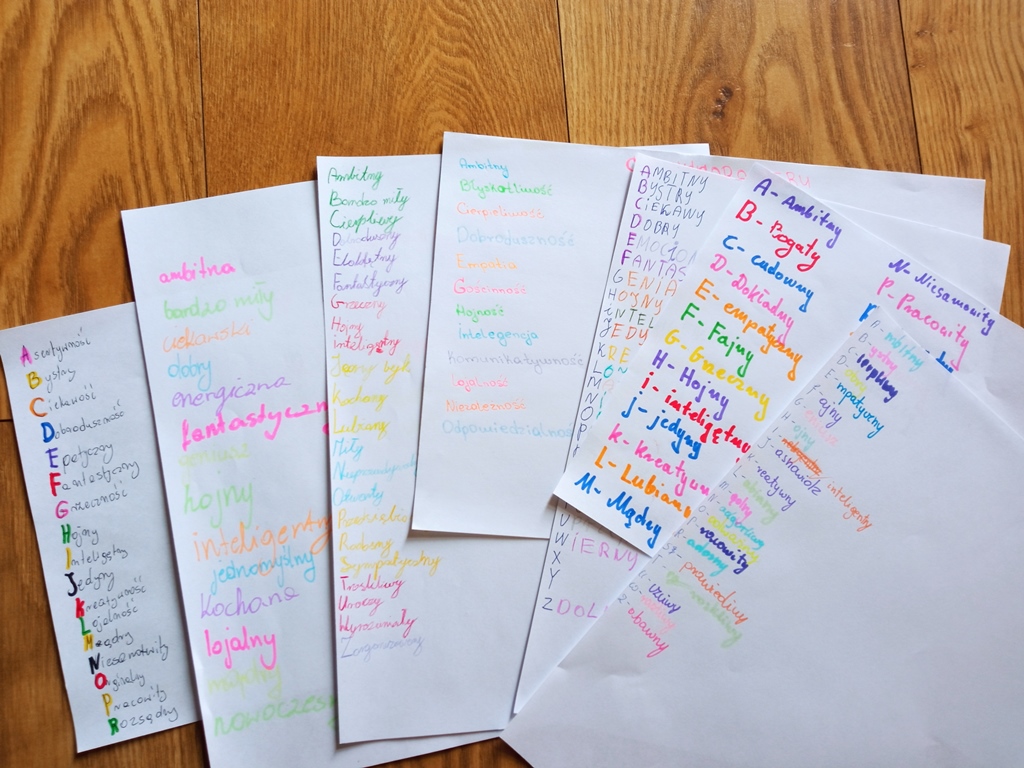 Asertywność
Bystry
Ciekawość
Dobroduszność
Fantastyczny
Grzeczność
Hojny
Inteligętny
Jedyny
Kreatywność
Lojalność
Mądry
Niesamowity
Orginalny
Pracowity
Rozsądny
ambitna
bardzo miły
ciekawska
dobry
energiczna
fantastyczn
geniusz
hojny
inteligentny
jednomyślny
Kochana
lojalny
Ambitny
Bardzo miły
Cierpliwy
Fantastyczny
Grzeczny
Hojny
Inteligentny
Kochany
Lubiany
Miły
Otwarty
Sympatyczny
Troskliwy
Uroczy
Wyrozumiały
Ambitny
Błyskotliwość
Cierpliwość
Dobroduszność
Empatia
Gościnność
Hojność
Inteligencja
Komunikatywność
Lojalność
Niezależność
Odpowiedzialność
AMBITNY
BYSTRY
CIEKAWY
DOBRY
EMOCJON
FANTAS
GENIA
HOJNY
INTEL
JEDY
KRE
WIERNY
X
Y
Z DOL
A - Ambitny
B - Bogaty
C - cudowny
D - Dokładny
E - empatyczny
F - Fajny
G - Grzeczny
H - Hojny
i - inteligętny
j - jedyny
K - Kreatywn
L - Lubian
M - Mądry
N - Niesamowity
P - Pracowity
A - mbitny
E - mpatyczny
F - ajny
H - ojny
inteligenty
K - reatywny
P - racowity
R - adosny
prawdziwy
Z - abawny